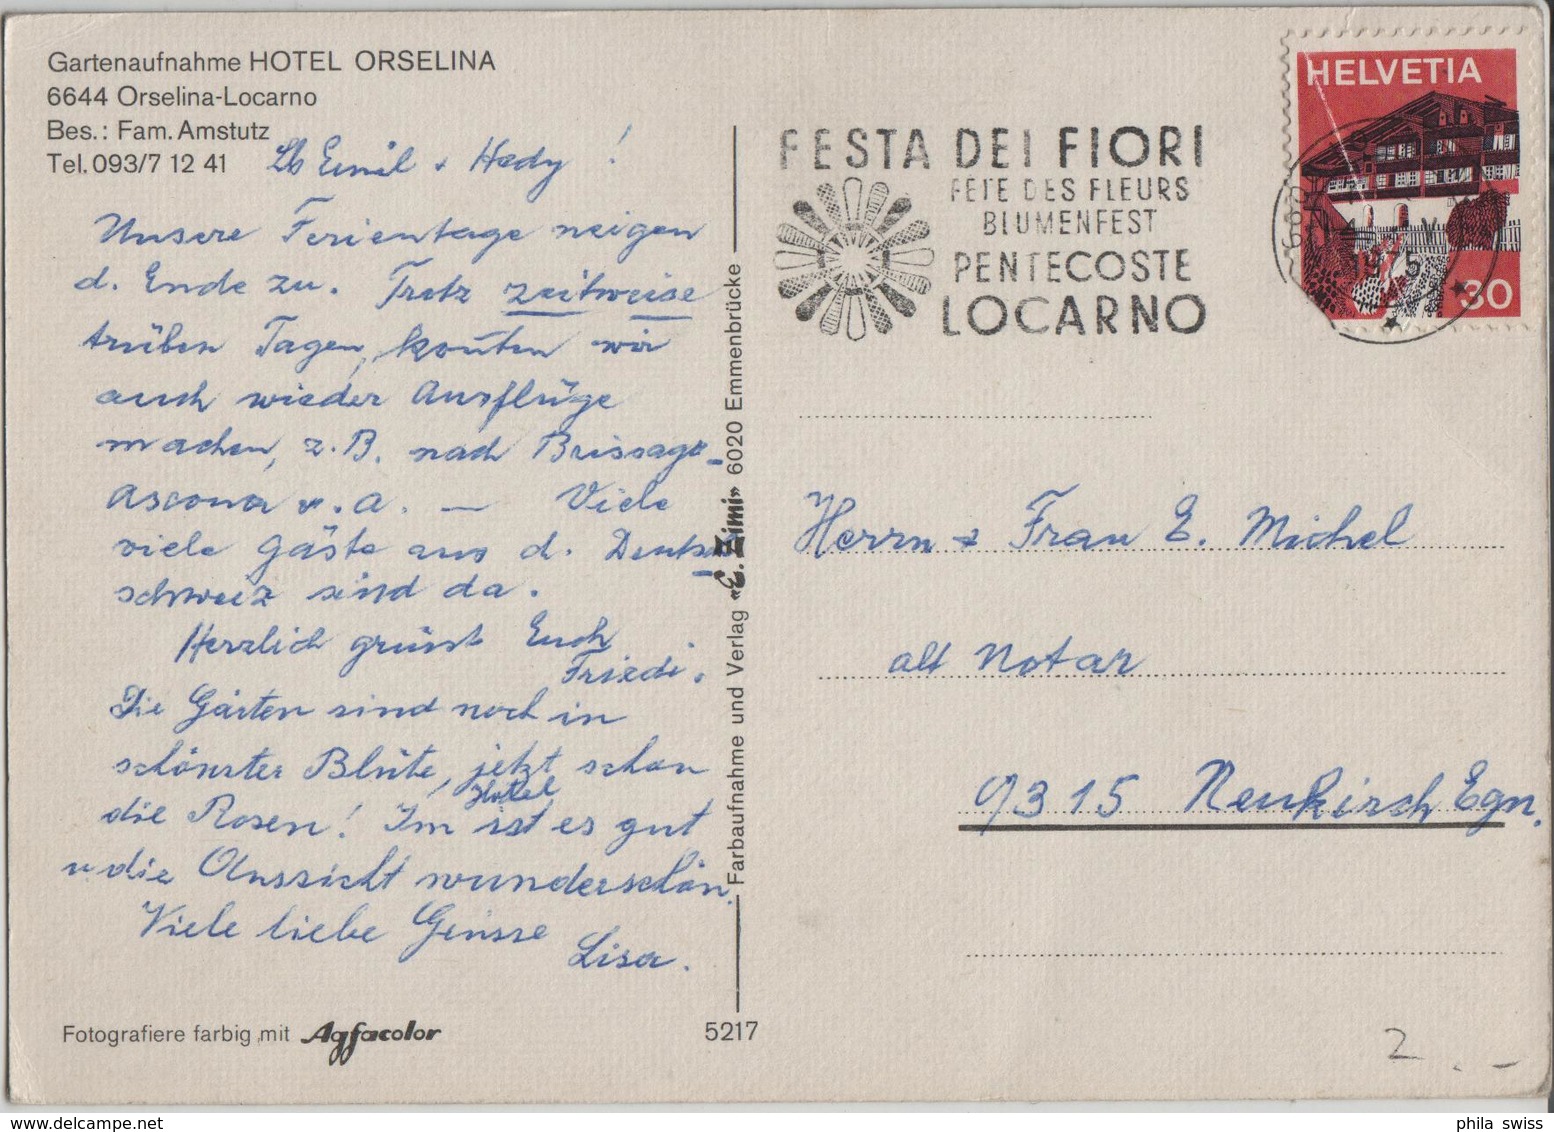 Gartenaufnahme HOTEL ORSELINA
6644 Orselina-Locarno
Bes.: Fam. Amstutz
Tel. 093/7 12 41
Lb Emil + Hedy !
Unsere Ferientage neigen
d. Ende zu. Trotz zeitweise
trüben Tagen, konnten wir
auch wieder Ausflüge
machen, z.B. nach Brissago-
Ascona u. a. — Viele
viele Gäste aus d. Deutsch-
schweiz sind da.
Herzlich grüsst Euch
Friedi.
Die Gärten sind noch in
schönster Blüte, jetzt schon
die Rosen! Im Hotel ist es gut
u die Aussicht wunderschön.
Viele liebe Grüsse
Lisa.
Fotografiere farbig mit Agfacolor
5217
Farbaufnahme und Verlag «E. Zimi» 6020 Emmenbrücke
FESTA DEI FIORI
FETE DES FLEURS
BLUMENFEST
PENTECOSTE
LOCARNO
HELVETIA
30
1975
Herrn & Frau E. Michel
alt Notar
9315 Neukirch Egn.
2.-
phila swiss